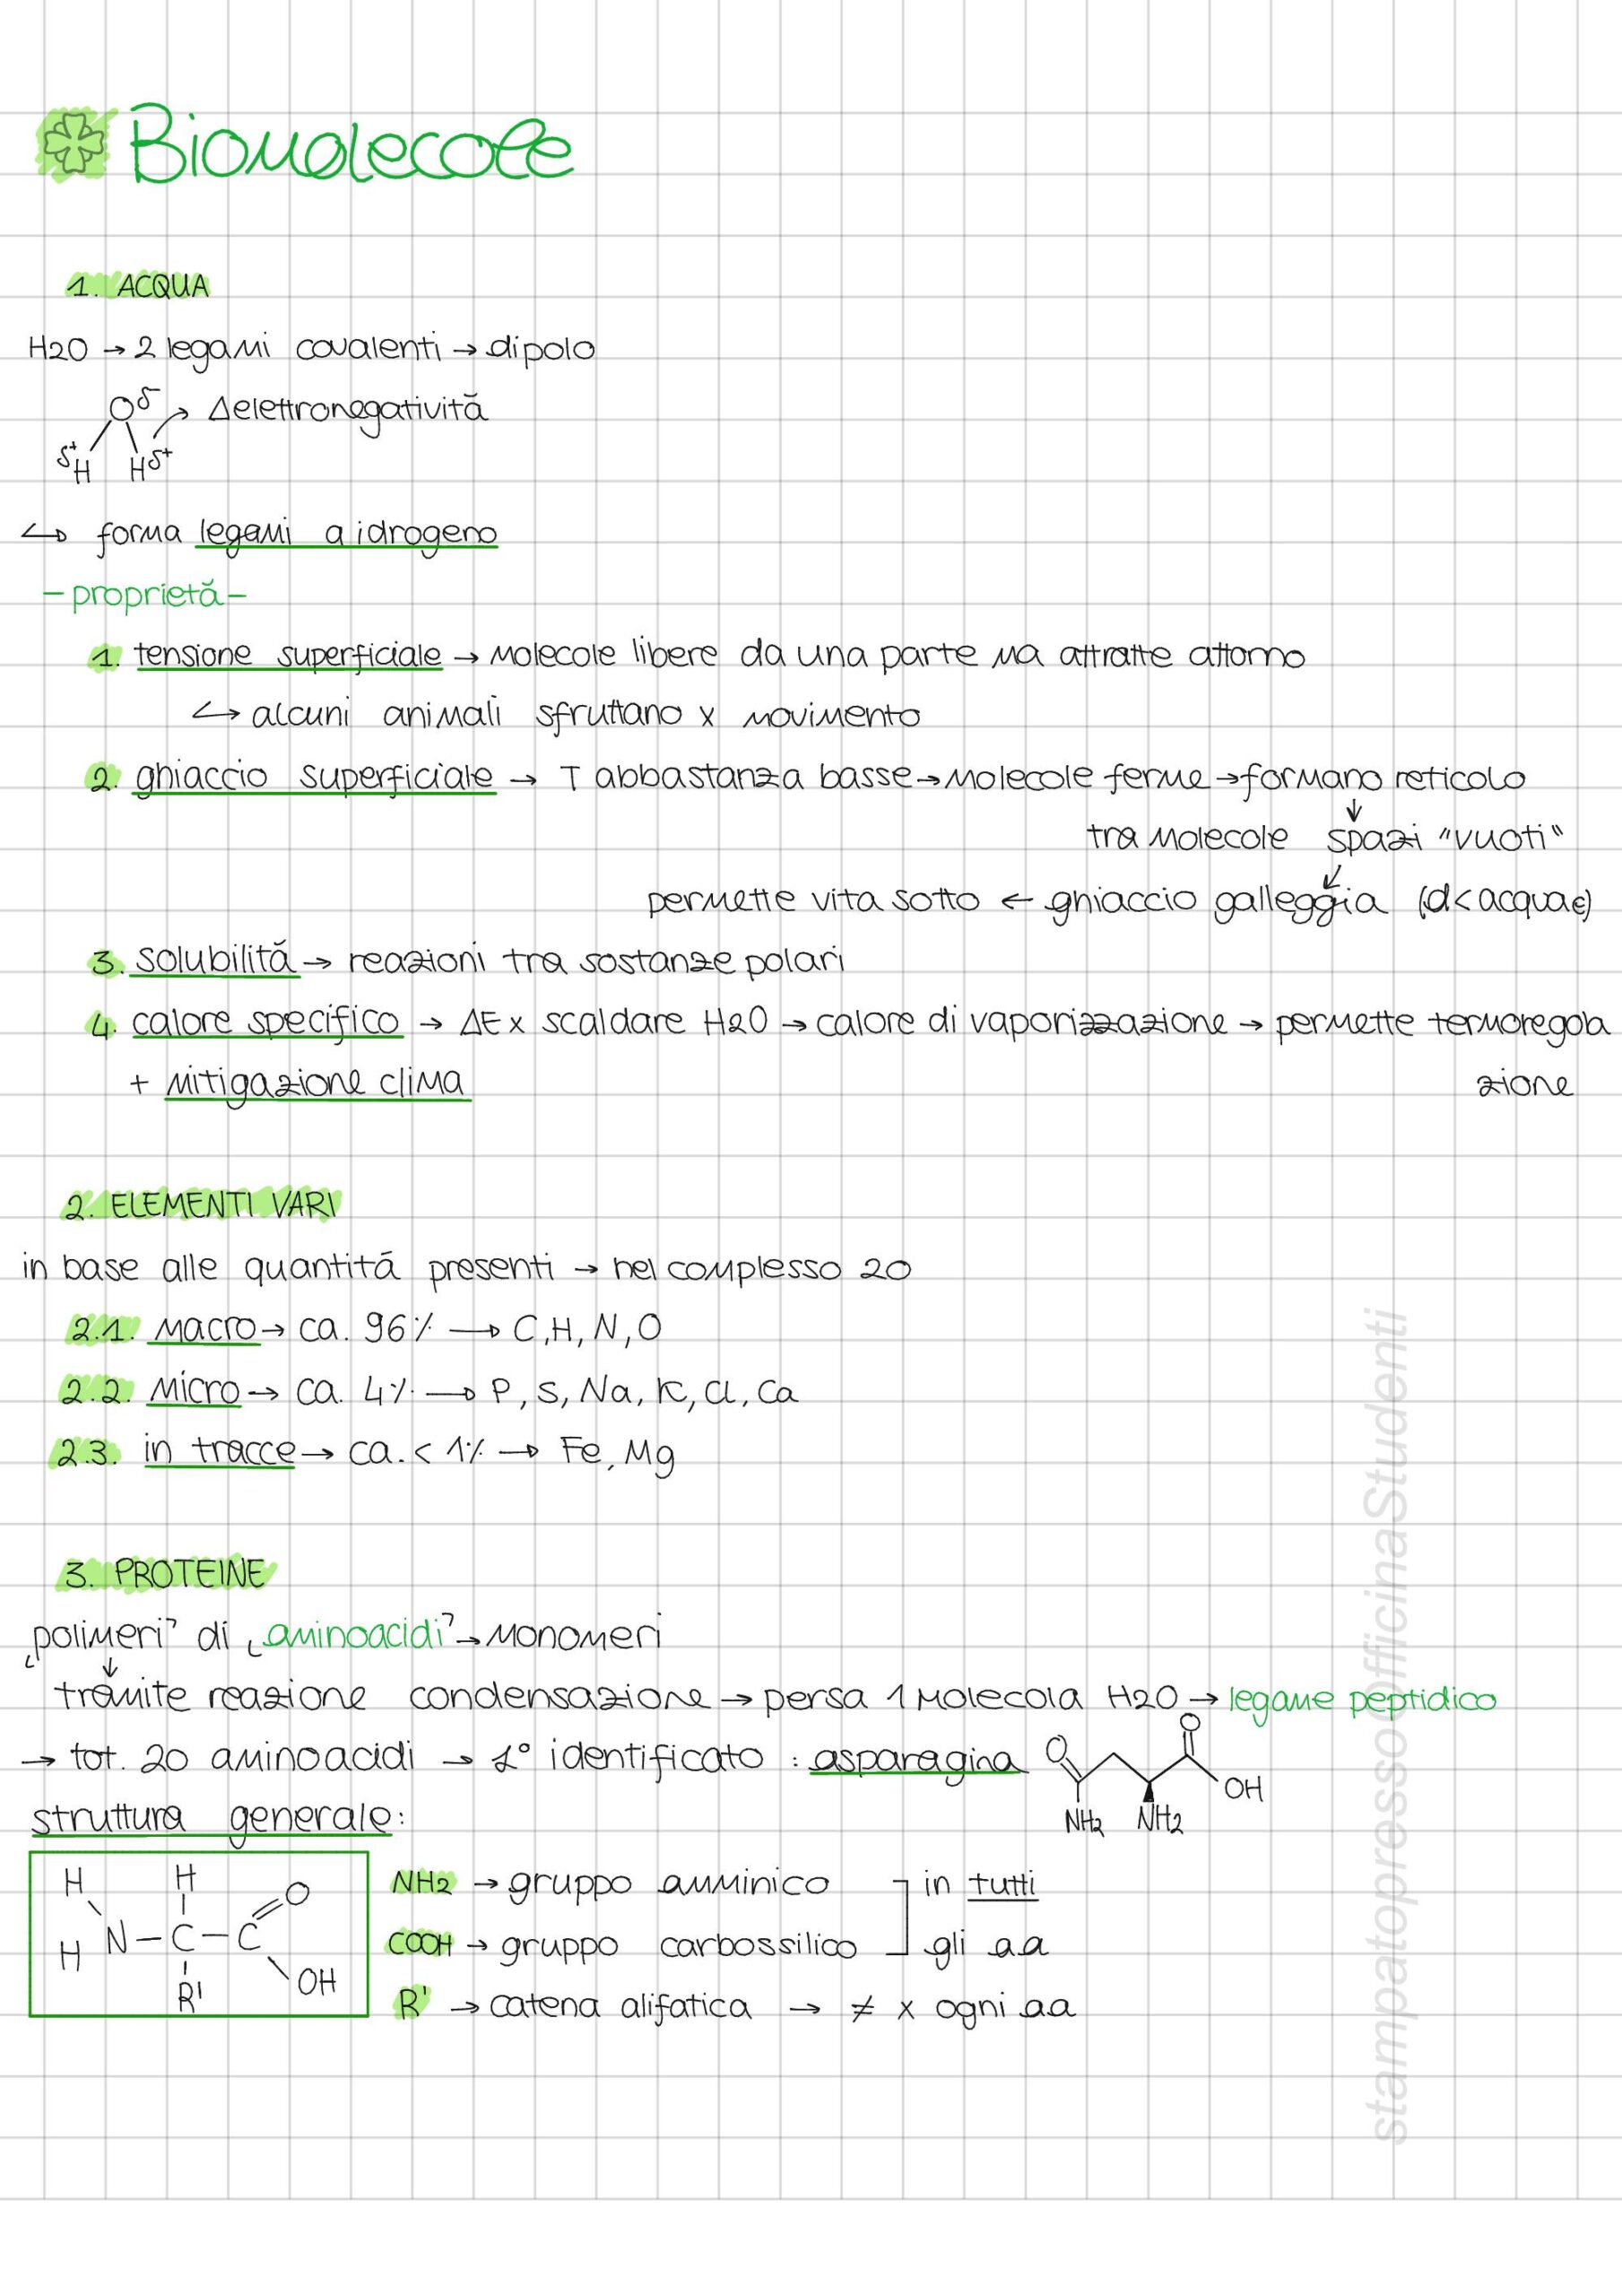 Biomolecole
1. ACQUA
H2O → 2 legami covalenti → dipolo
O δ- → Δelettronegatività
δ+ H H δ+
↳ forma legami a idrogeno
- proprietà -
1. tensione superficiale → molecole libere da una parte ma attratte attorno
↳ alcuni animali sfruttano x movimento
2. ghiaccio superficiale → T abbastanza basse → molecole ferme → formano reticolo
↓
tra molecole spazi "vuoti"
↙
permette vita sotto ← ghiaccio galleggia (d < acqua)
3. solubilità → reazioni tra sostanze polari
4. calore specifico → ΔE x scaldare H2O → calore di vaporizzazione → permette termoregola
+ mitigazione clima zione
2. ELEMENTI VARI
in base alle quantità presenti → nel complesso 20
2.1. macro → ca. 96% → C, H, N, O
2.2. micro → ca. 4% → P, S, Na, K, Cl, Ca
2.3. in tracce → ca. < 1% → Fe, Mg
3. PROTEINE
"polimeri" di "aminoacidi" → monomeri
↓
tramite reazione condensazione → persa 1 molecola H2O → legame peptidico
→ tot. 20 aminoacidi → 1° identificato : asparagina
O O OH
NH2 NH2
struttura generale:
H H O
H N - C - C
R' OH
NH2 → gruppo amminico ] in tutti
COOH → gruppo carbossilico ] gli aa
R' → catena alifatica → ≠ x ogni aa
stampatopressoOfficinaStudenti